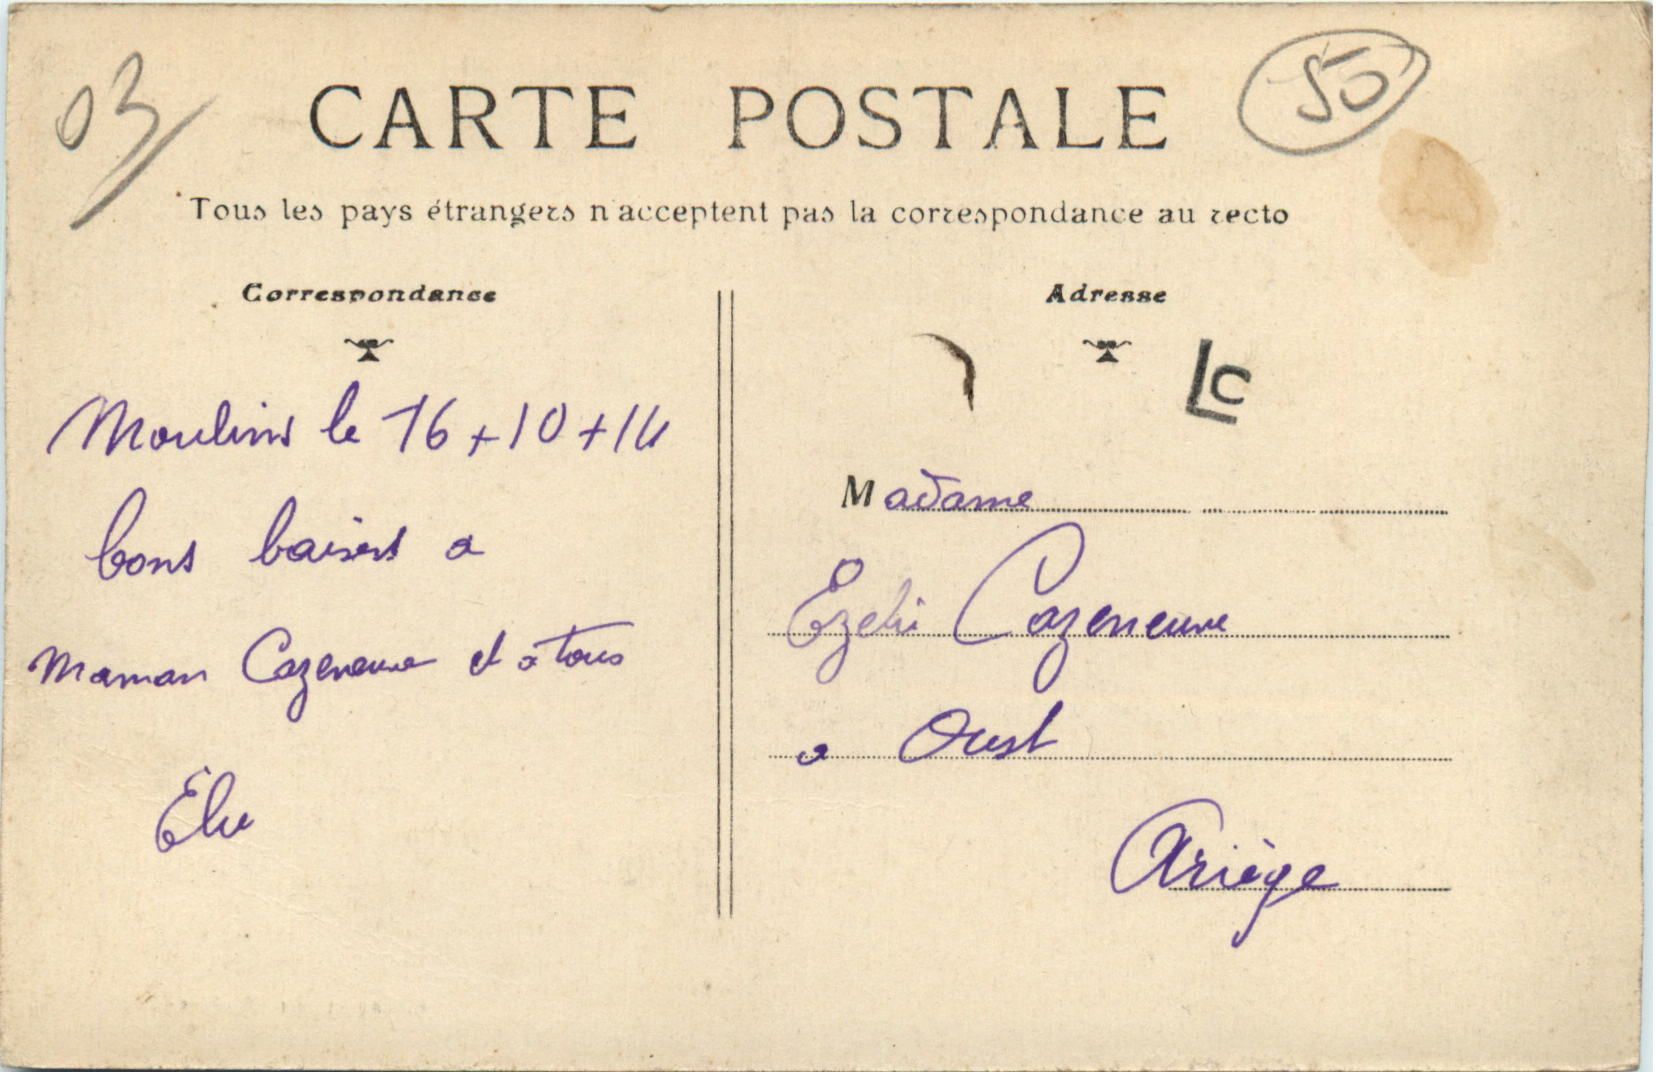 03
CARTE POSTALE
50
Tous les pays étrangers n'acceptent pas la correspondance au recto
Correspondance
Moulins le 16+10+14
bons baisers a
Maman Cazeneuve et a tous
Adresse
LC
Madame
Cazeneuve
a Oust
Ariège